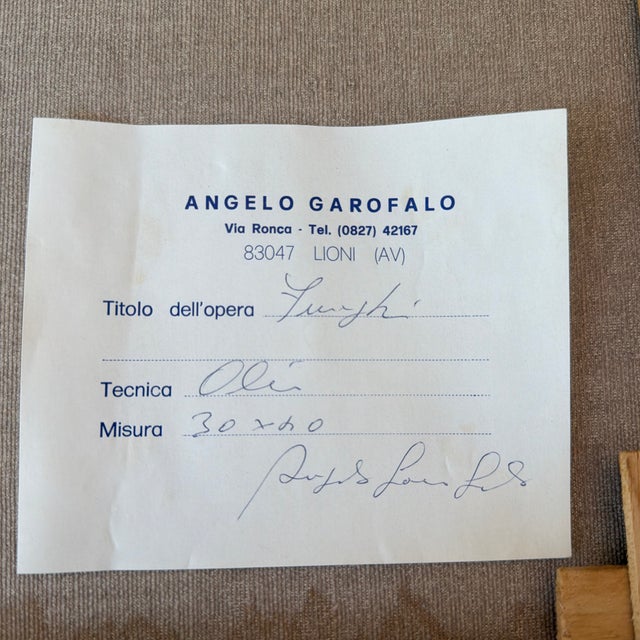 ANGELO GAROFALO
Via Ronca - Tel. (0827) 42167
83047 LIONI (AV)
Titolo dell'opera Funghi
Tecnica Olio
Misura 30x40
Angelo Garofalo